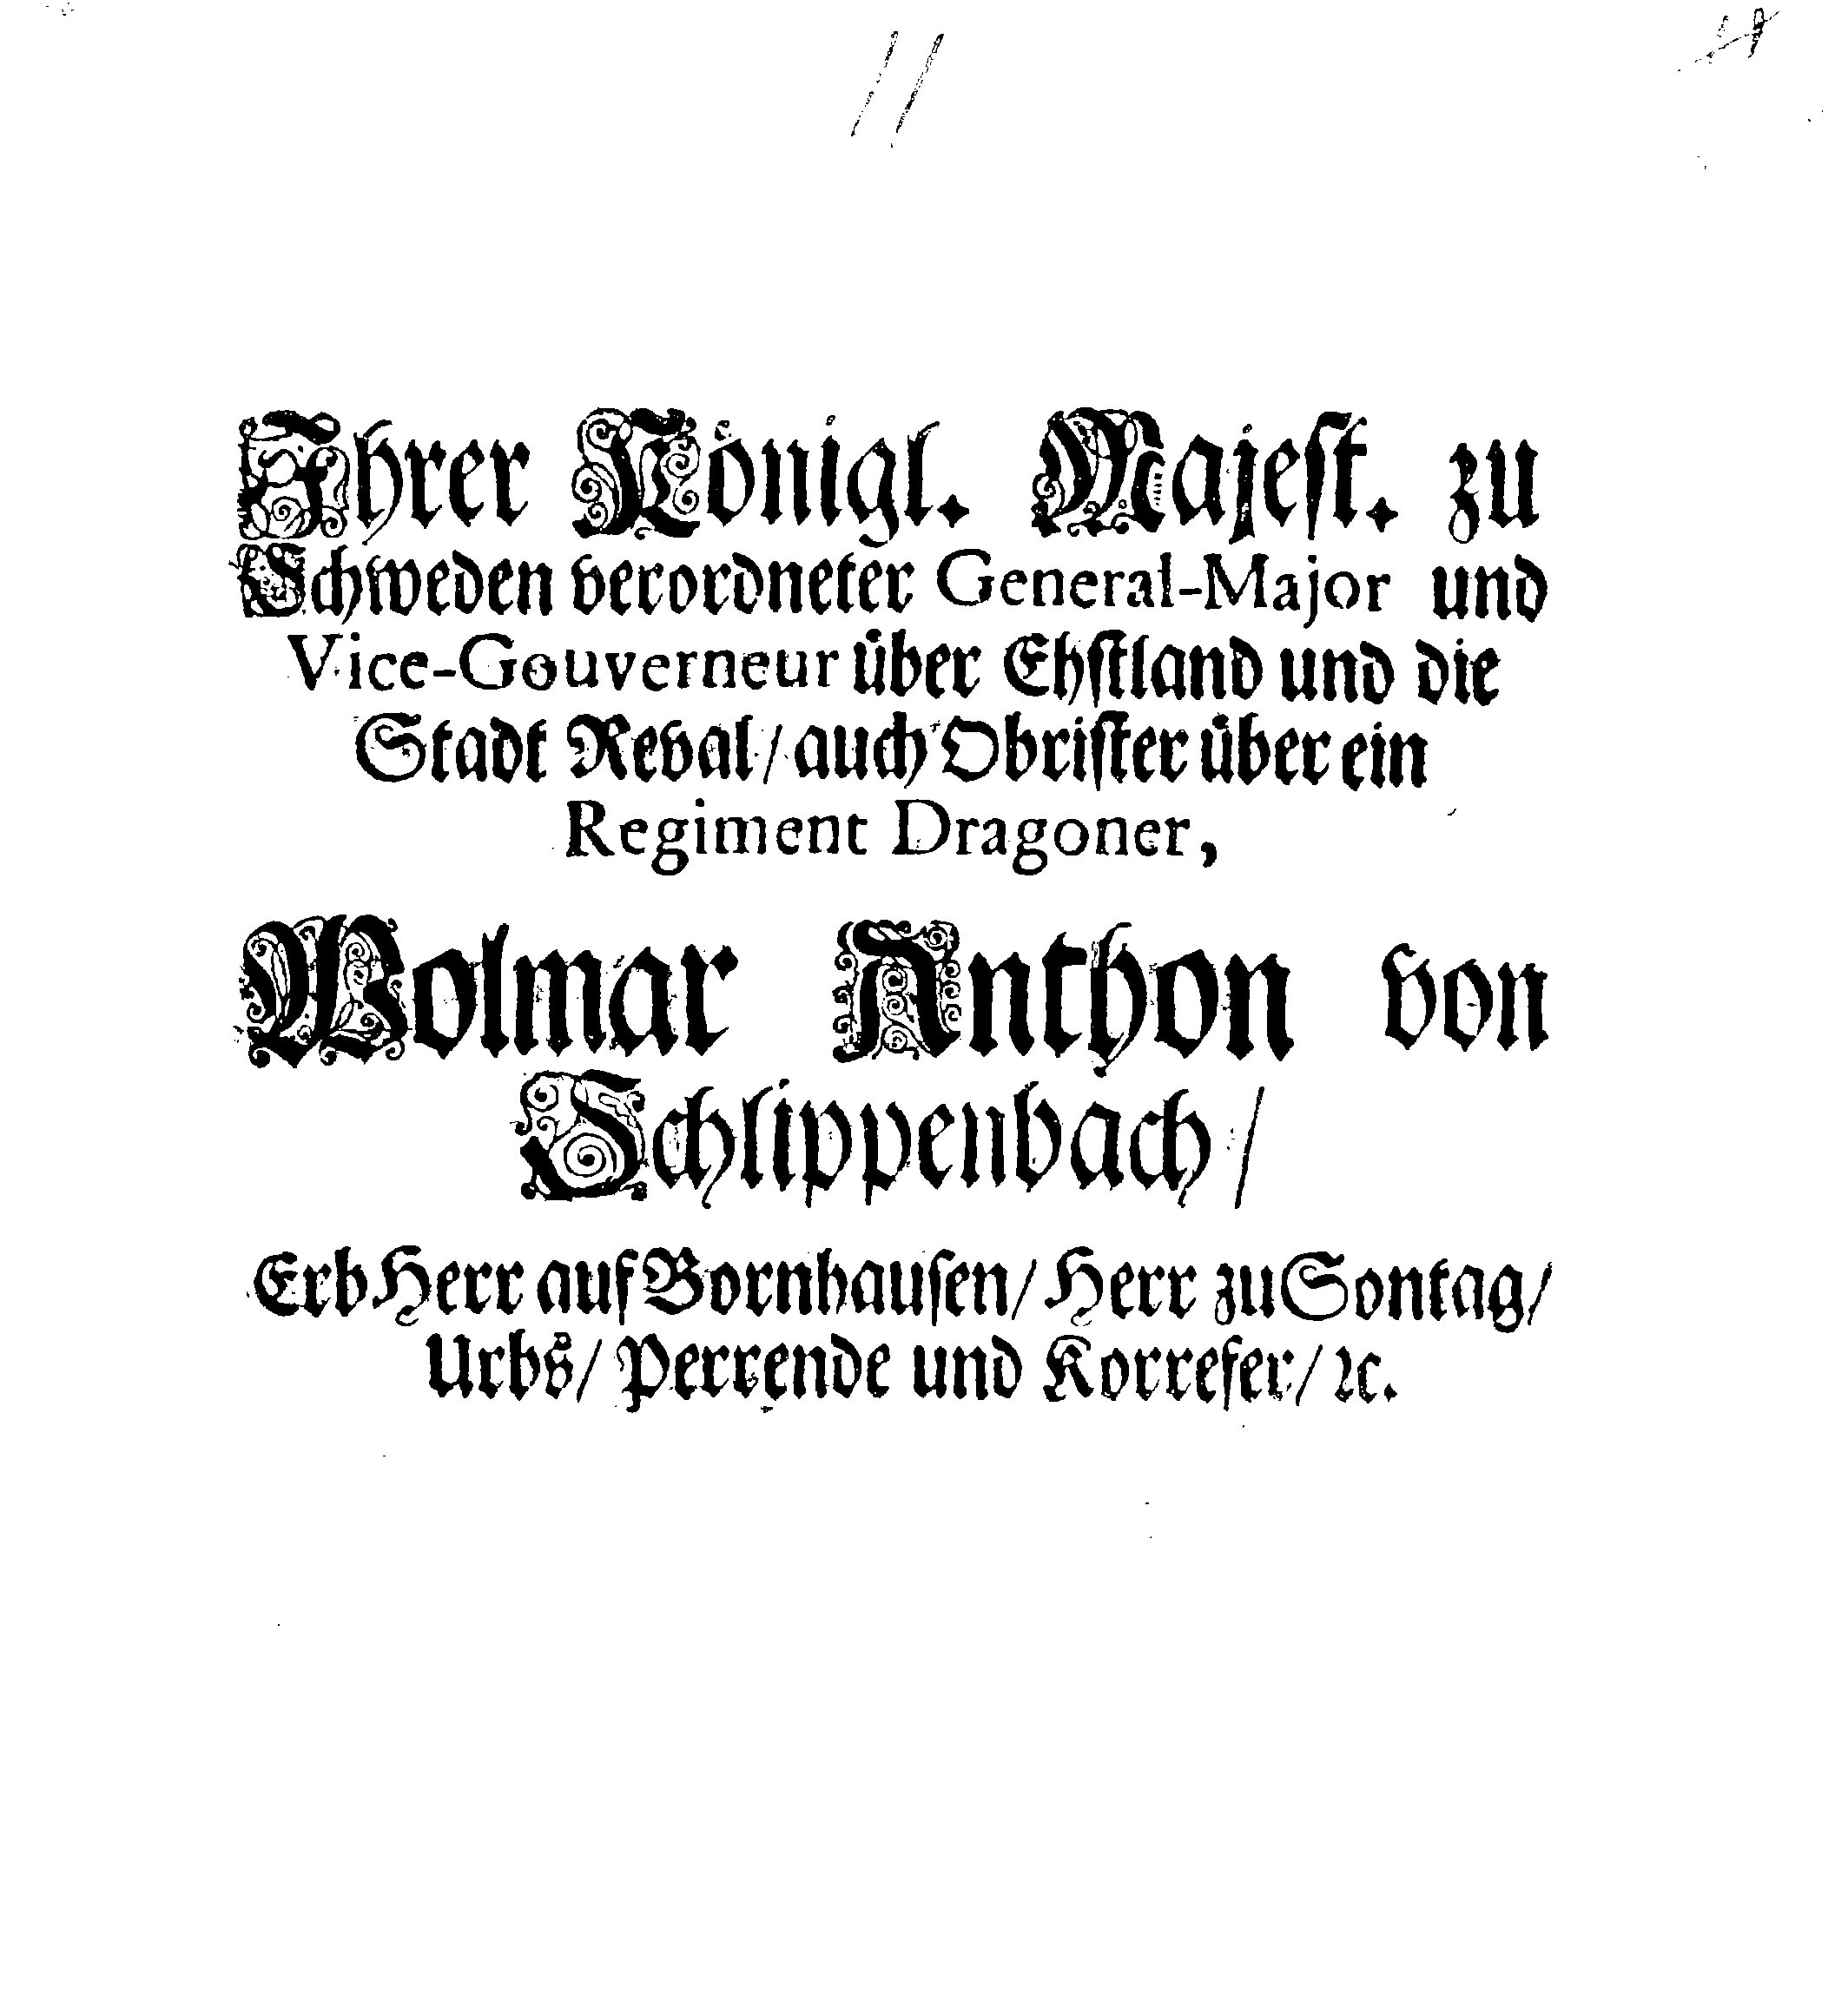 Ihrer Königl. Majest. zu
Schweden verordneter General-Major und
Vice-Gouverneur über Ehstland und die
Stadt Reval/ auch Obrister über ein
Regiment Dragoner,
Wolmar Anthon von
Schlippenbach/
Erb Herr auf Bornhausen/ Herr zu Sontag/
Urbs/ Perrende und Korrefer/ ꝛc.